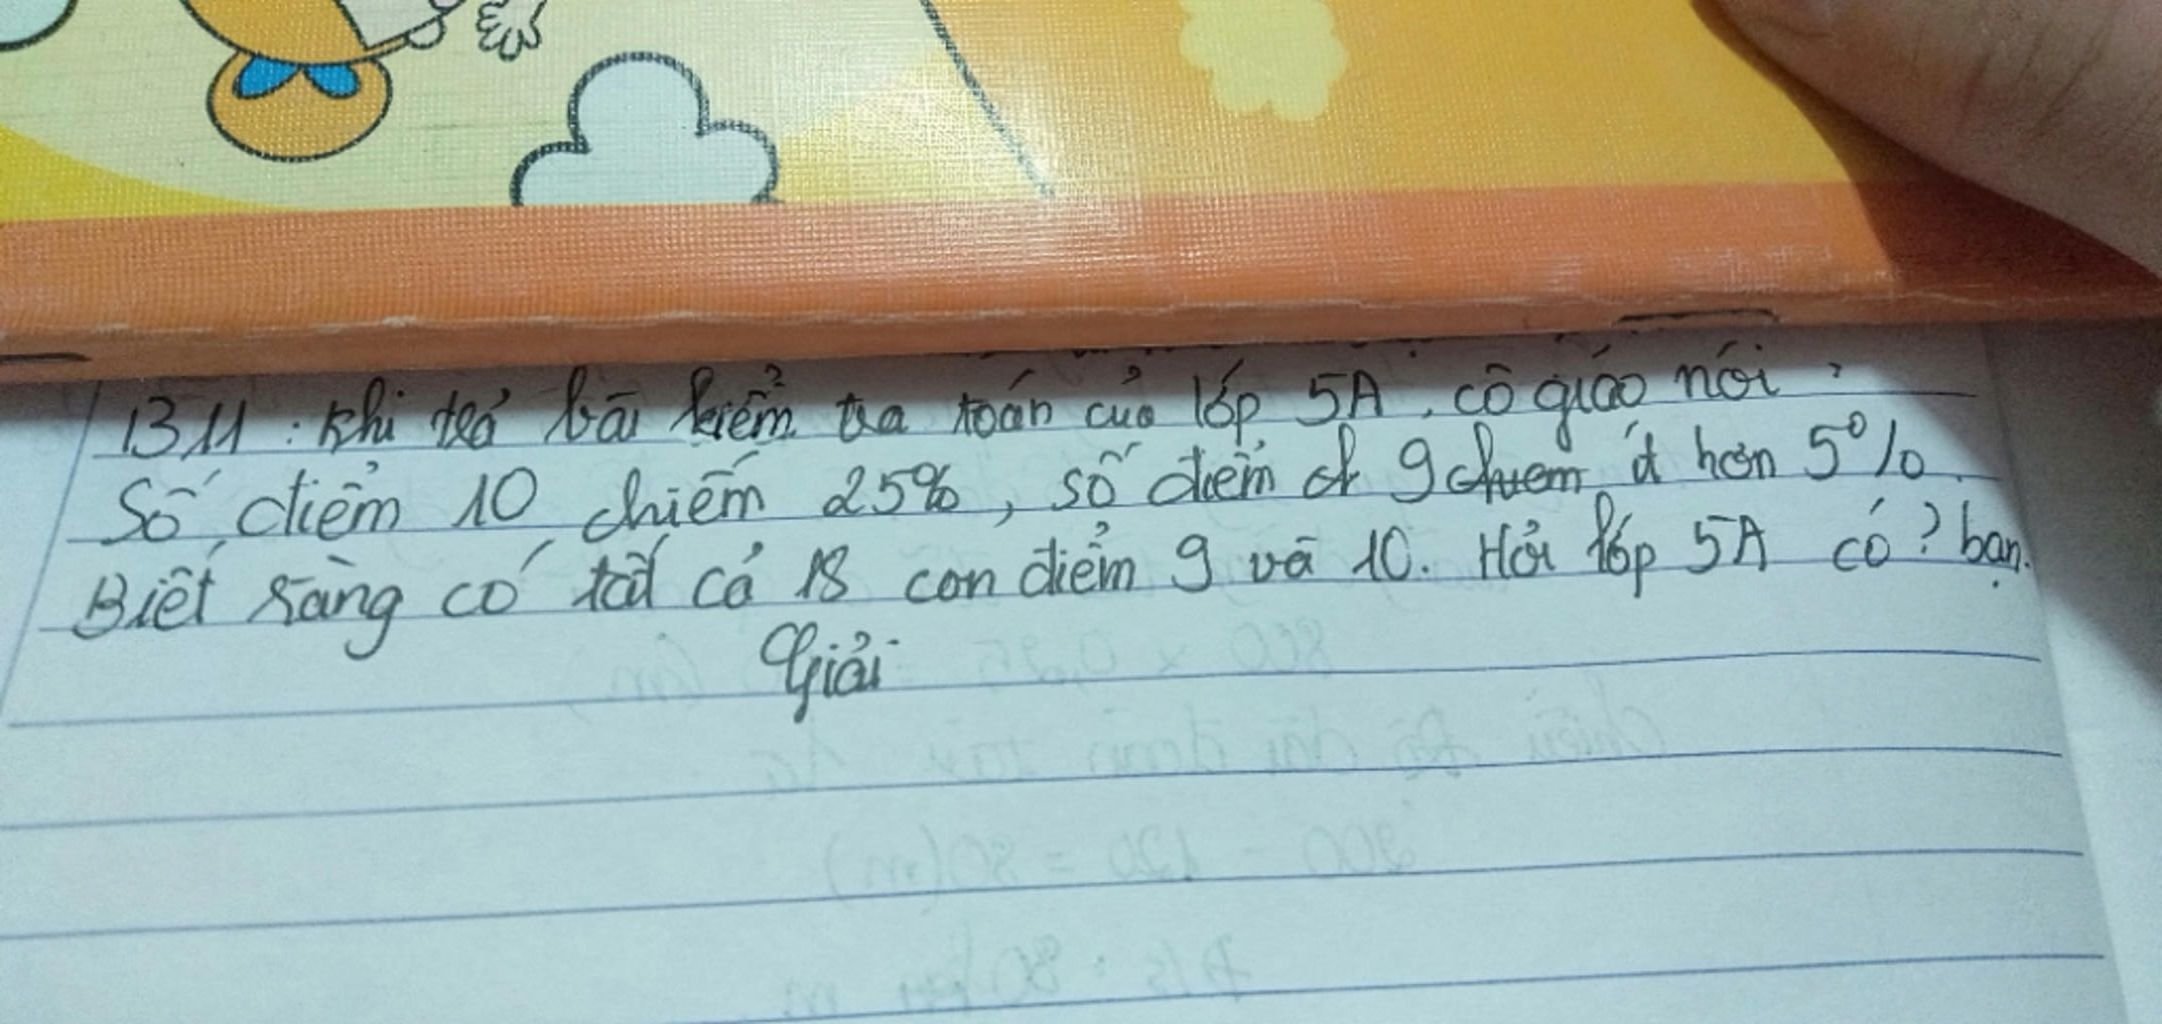 B11: Khi trả bài kiểm tra toán của lớp 5A, cô giáo nói:
Số điểm 10 chiếm 25%, số điểm 9 chiếm ít hơn 5%.
Biết rằng có tất cả 18 con điểm 9 và 10. Hỏi lớp 5A có ? bạn.
Giải